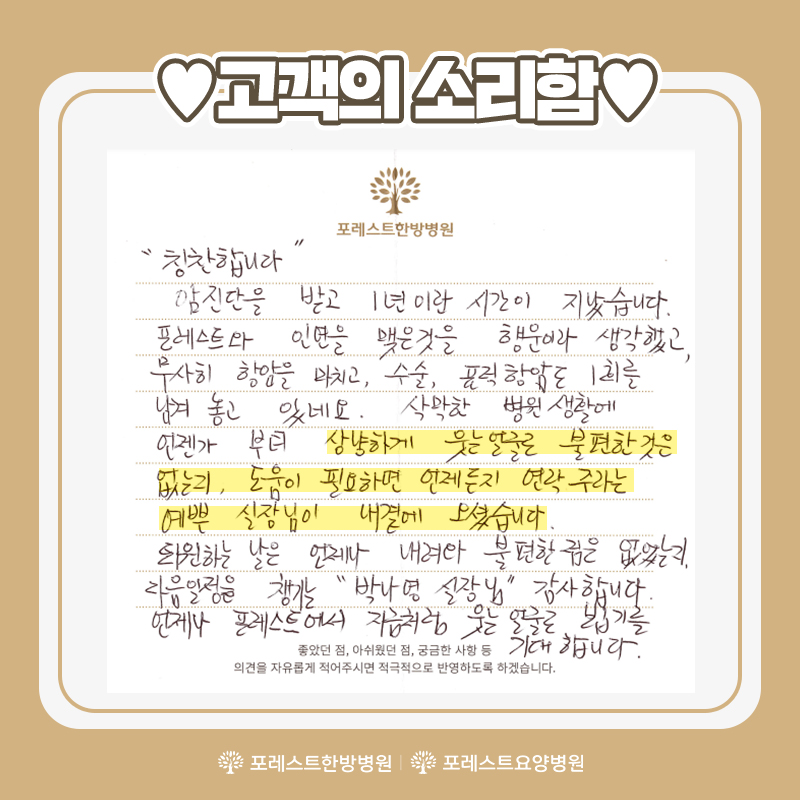 ♥고객의 소리함♥
포레스트한방병원
"칭찬합니다"
암진단을 받고 1년이란 시간이 지났습니다.
포레스트와 인연을 맺은것을 행운이라 생각했고,
무사히 항암을 마치고, 수술, 표적항암도 1회를
남겨 놓고 있네요. 삭막한 병원생활에
언젠가 부터 상냥하게 웃는얼굴로 불편한것은
없는지, 도움이 필요하면 언제든지 연락주라는
예쁜 실장님이 내곁에 오셨습니다.
퇴원하는 날은 언제나 내려와 불편한점은 없었는지,
다음일정을 챙기는 "박나영 실장님" 감사합니다.
언제나 포레스트에서 지금처럼 웃는 얼굴로 뵙기를
기대합니다.
좋았던 점, 아쉬웠던 점, 궁금한 사항 등
의견을 자유롭게 적어주시면 적극적으로 반영하도록 하겠습니다.
포레스트한방병원 | 포레스트요양병원